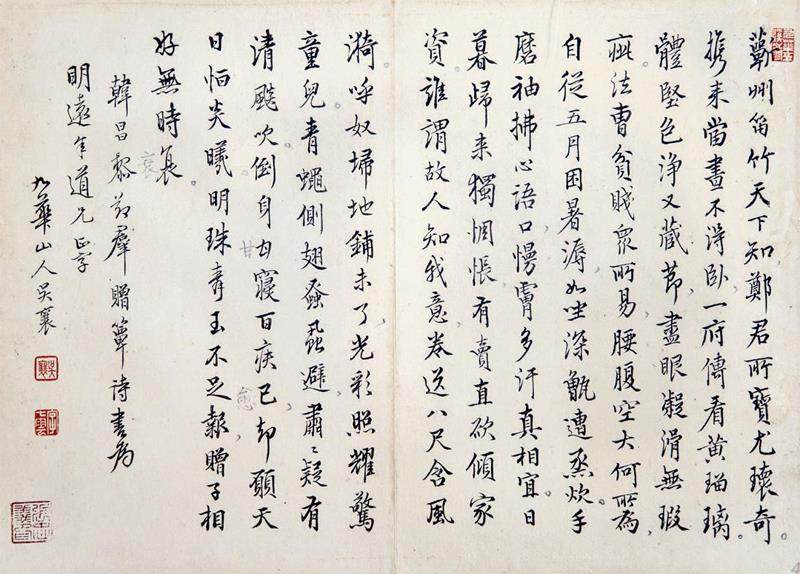 蘄州笛竹天下知鄭君所寶尤瓌奇
攜来當晝不得卧一府傳看黄瑠璃
體堅色浄又藏節盡眼凝滑無瑕
疵法曹貧賤眾所易腰腹空大何所為
自從五月困暑溽如坐深甑遭烝炊手
磨袖拂心語口慢膚多汗真相宜日
暮歸来獨惆悵有賣直欲傾家
資誰謂故人知我意卷送八尺含風
漪呼奴掃地鋪未了光彩照耀驚
童兒青蠅側翅蚤虱避肅〻疑有
清飈吹倒身甘寢百疾已却願天
甘
愈
日恒炎曦明珠青玉不足報贈子相
好無時衰
衰
韓昌黎鄭羣贈簟詩書為
明遠年道兄正字
九華山人吳襄